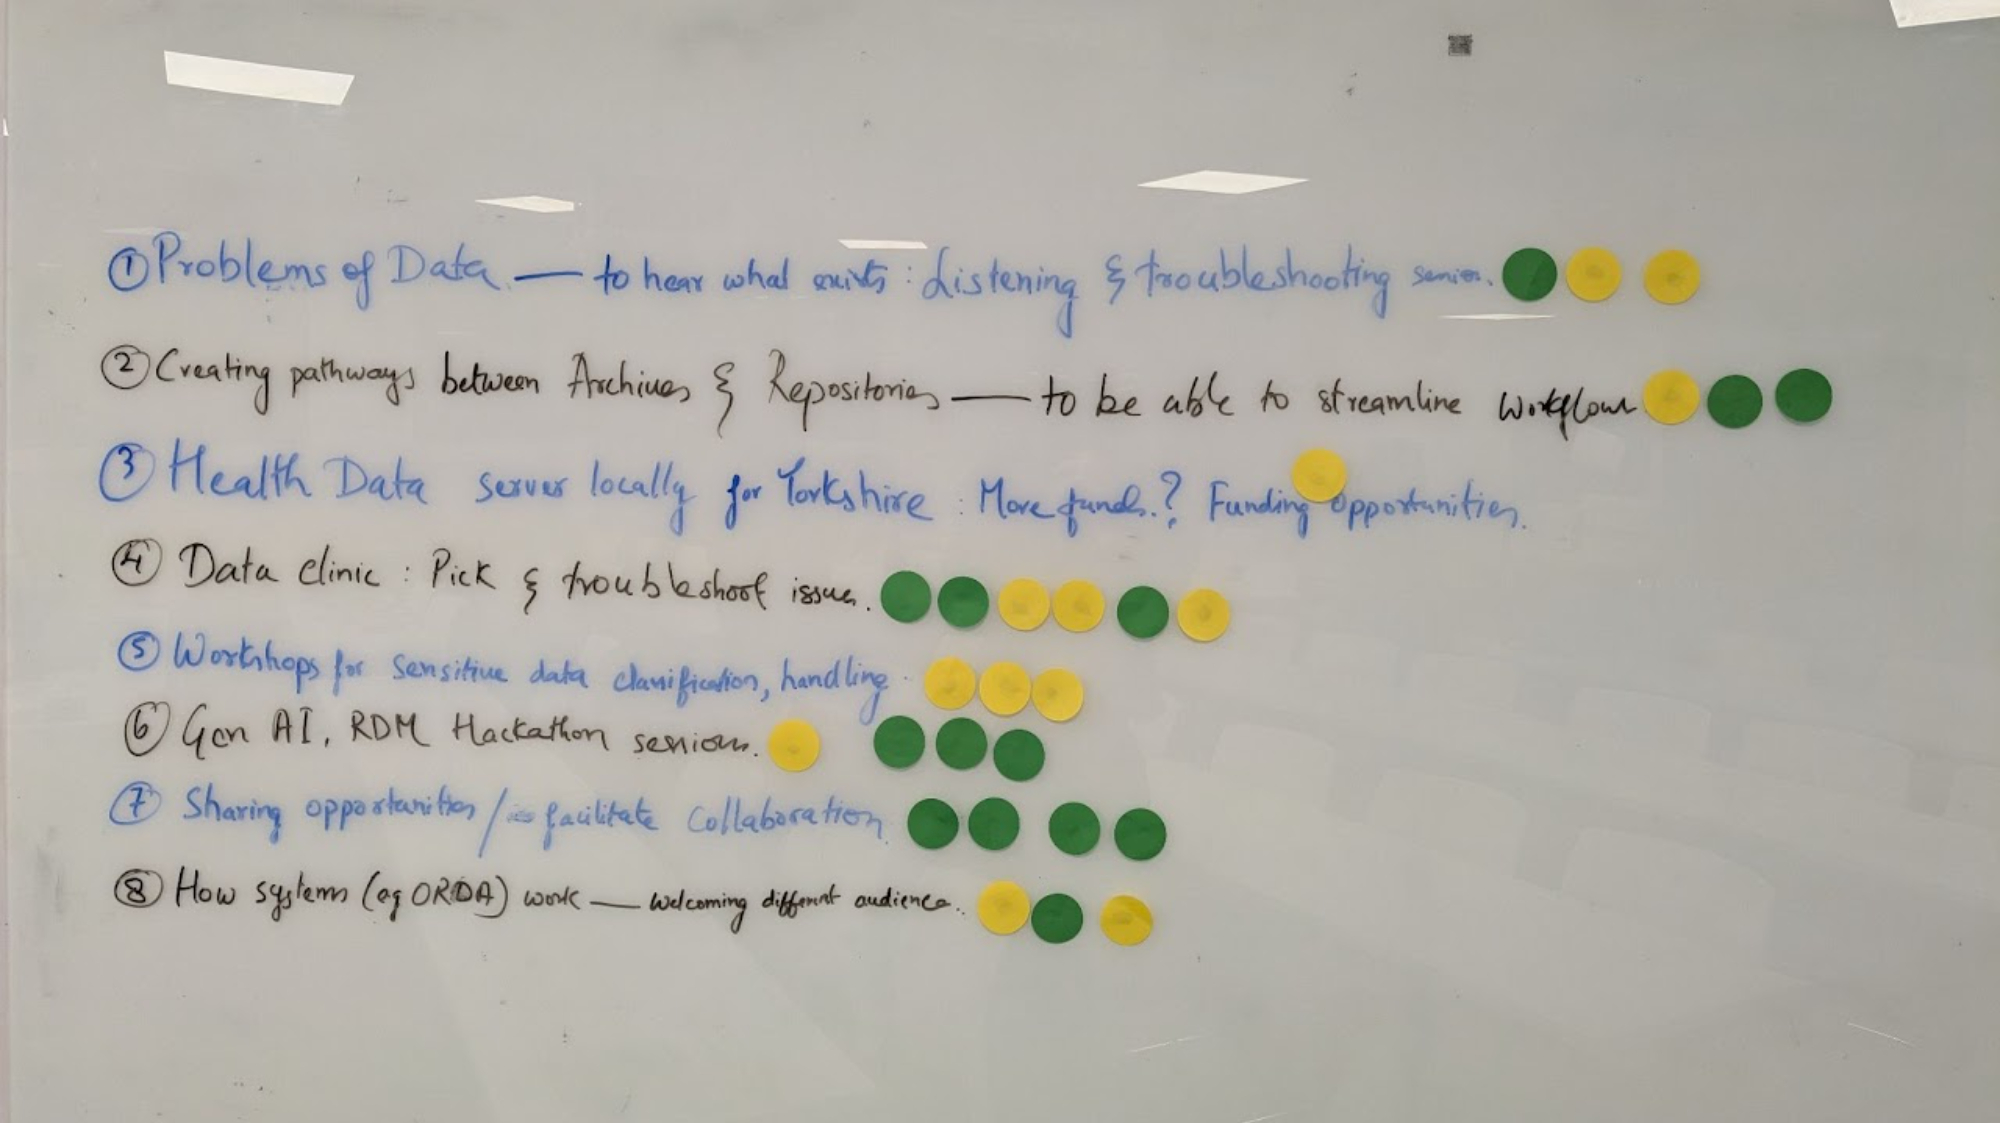 ① Problems of Data — to hear what exists : Listening & troubleshooting session.
② Creating pathways between Archives & Repositories — to be able to streamline workflows
③ Health Data server locally for Yorkshire : More funds.? Funding opportunities.
④ Data clinic : Pick & troubleshoot issues.
⑤ Workshops for sensitive data classification, handling.
⑥ Gen AI, RDM Hackathon sessions.
⑦ Sharing opportunities / facilitate collaboration
⑧ How systems (eg ORDA) work — welcoming different audience.